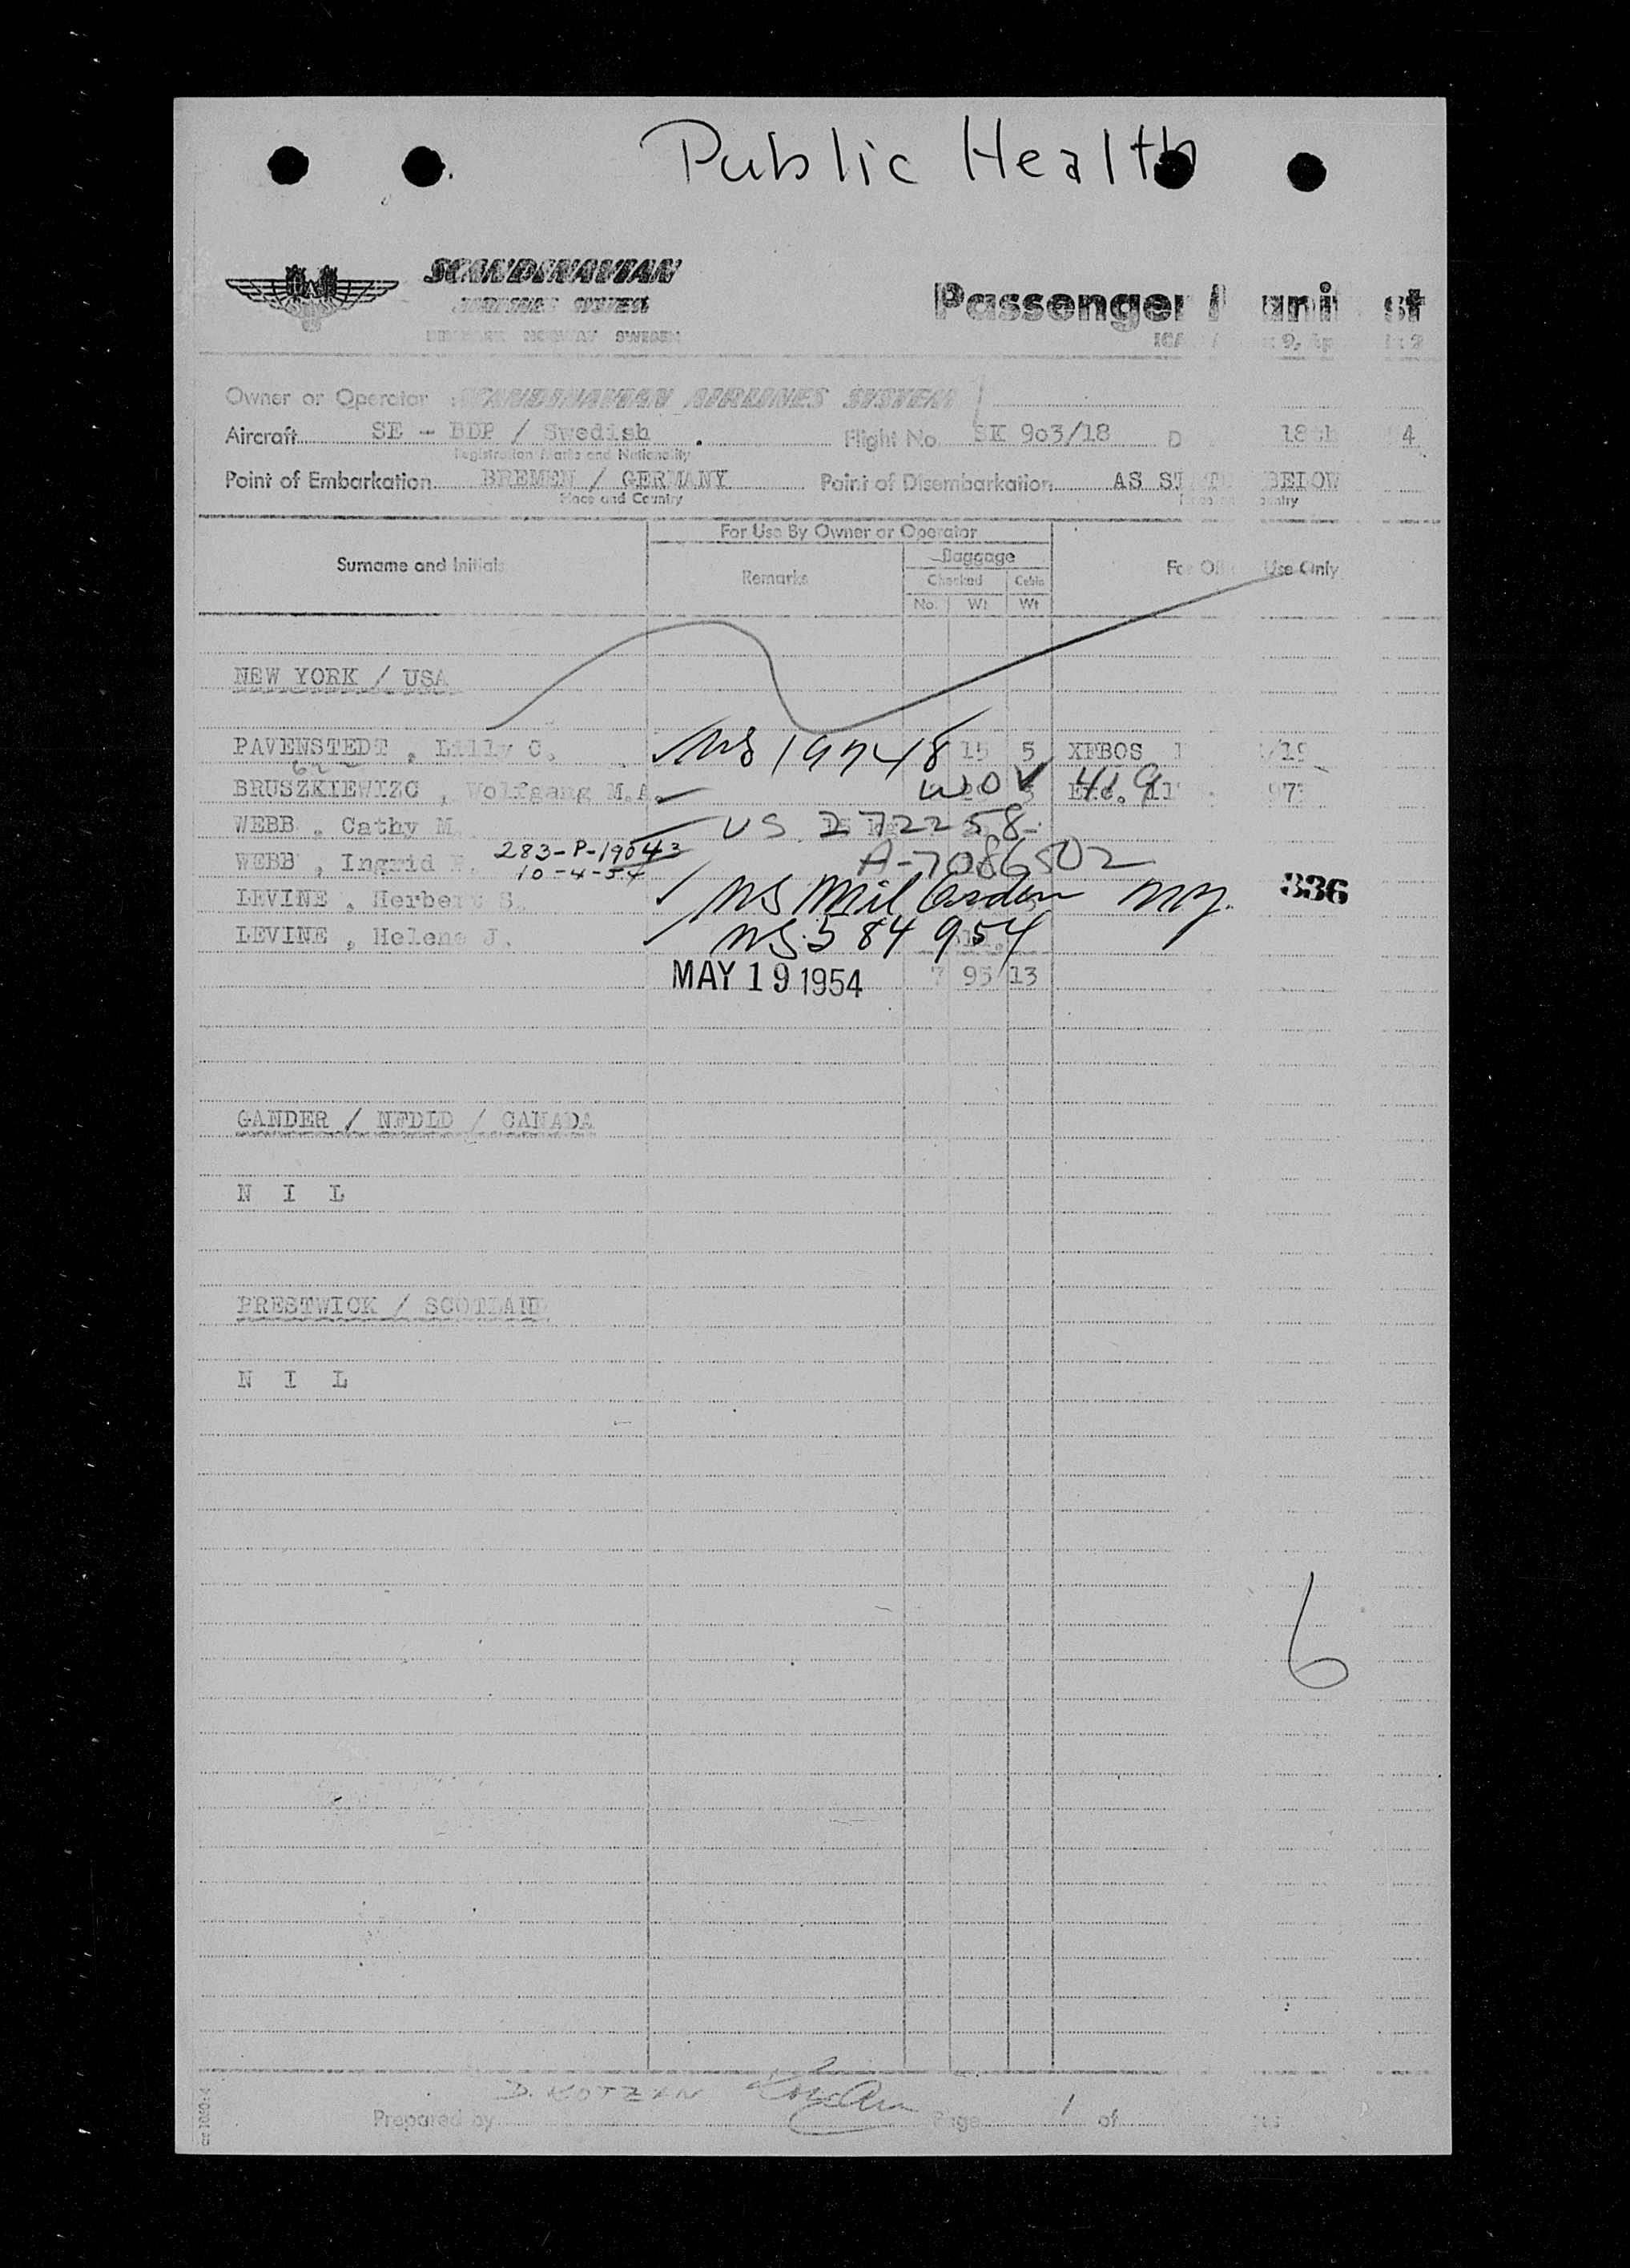 Public Health
SCANDINAVIAN
AIRLINES SYSTEM
DENMARK NORWAY SWEDEN
Passenger
Owner or Operator SCANDINAVIAN AIRLINES SYSTEM
Aircraft SE - BDP / Swedish Flight No. SK 903/18 18th 4
Registration Marks and Nationality
Point of Embarkation BREMEN / GERMANY Point of Disembarkation AS BELOW
Place and Country
For Use By Owner or Operator
Surname and Initials Remarks Baggage Use Only
Checked Cabin
No. Wt Wt
NEW YORK / USA
PAVENSTEDT , Lilly C. 19748 15 5 XFBOS
BRUSZKIEWIZC , Wolfgang M.A. WOV 419
WEBB , Cathy M. US 272258
WEBB , Ingrid 283-P-19043 A-7086502
10-4-54
LEVINE , Herbert S. Mil 336
LEVINE , Helene J. 584954
MAY 19 1954 7 95 13
GANDER / NFDLD / CANADA
N I L
PRESTWICK / SCOTLAND
N I L
6
D. KOTZAN
Prepared by Page 1 of